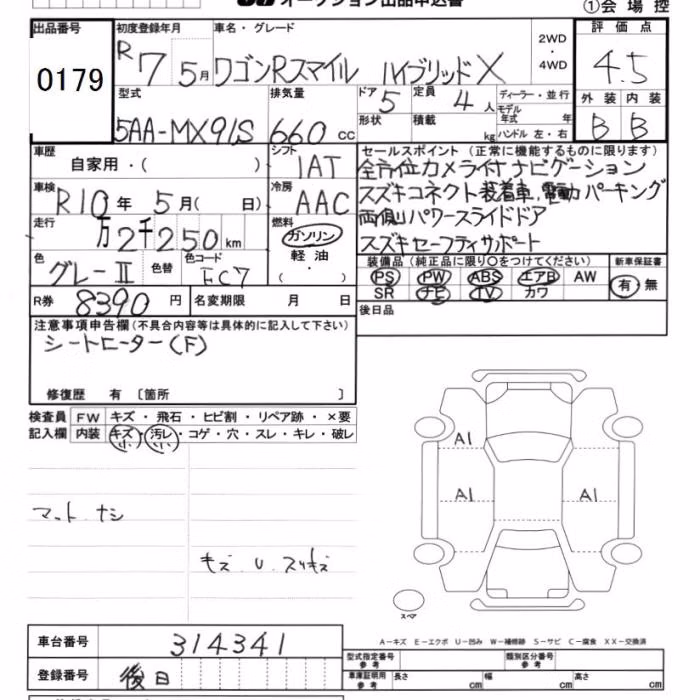 オークション出品申込書
①会場控
出品番号 初度登録年月 車名・グレード 評価点
0179 R7 5月 ワゴンRスマイル ハイブリッドX 2WD・4WD 4.5
型式 排気量 ドア 定員 ディーラー・並行 外装 内装
5AA-MX91S 660cc 5 4人 モデル年式 年 B B
形状 積載 kg ハンドル 左・右
車歴 シフト セールスポイント(正常に機能するものに限ります)
自家用・( ) IAT 全方位カメラ付ナビゲーション
車検 冷房 スズキコネクト装着車、電動パーキング
R10年 5月( 日) AAC 両側パワースライドドア
走行 燃料 スズキセーフティサポート
万2千250km ガソリン
軽油
( ・ )
色 色替 色コード 装備品(純正品に限り○をつけてください) 新車保証書
グレーⅡ FC7 PS PW ABS エアB AW 有・無
SR ナビ TV カワ
R券 8390円 名変期限 月 日 後日品
注意事項申告欄(不具合内容等は具体的に記入して下さい)
シートヒーター(F)
修復歴 有〔箇所 〕
検査員 FW キズ・飛石・ヒビ割・リペア跡・×要
記入欄 内装 キズ・汚レ・コゲ・穴・スレ・キレ・破レ
小 小
A1
A1 A1
マット ナシ
キズ U スリキズ
スペア
A−キズ E−エクボ U−凹み W−補修跡 S−サビ C−腐食 XX−交換済
車台番号 314341
型式指定番号 参考 類別区分番号 参考
登録番号 後日
車庫証明用 参考 長さ cm 幅 cm 高さ cm